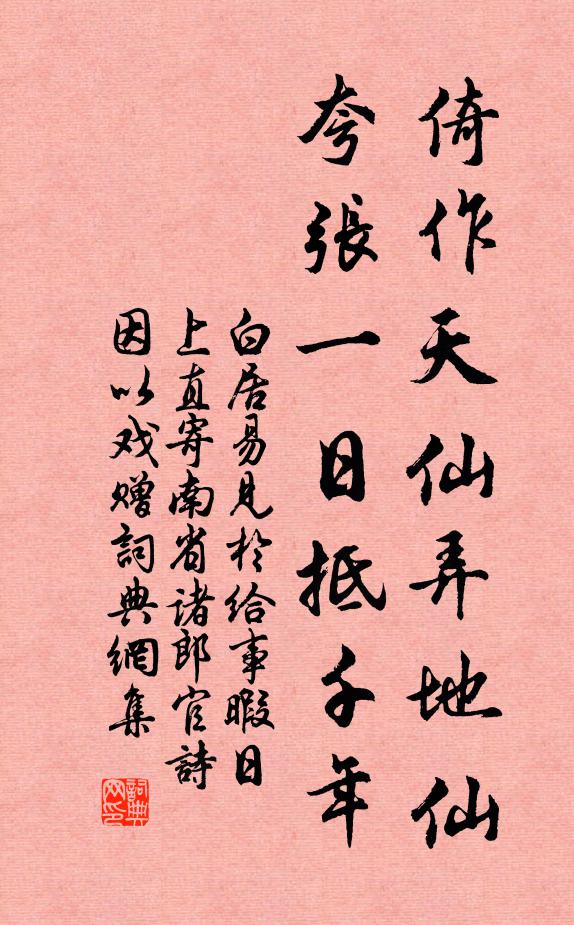 倚作天仙弄地仙
夸張一日抵千年
白居易見於給事暇日
上直寄南省諸郎官詩
因以戏赠詞典網集
詞典网印